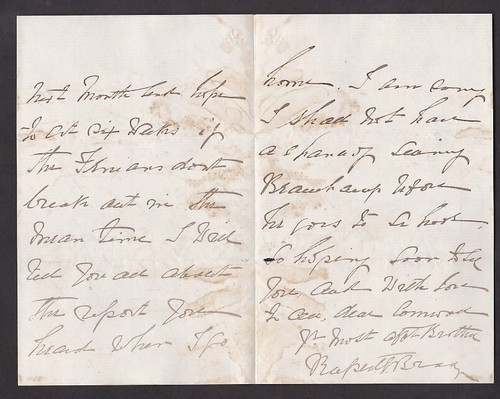 next Month and hope
to get six weeks if
the Fenians dont
break out in the
mean time I will
tell you all about
the report you
heard when I go
home. I am sorry
I shall not have
a chance of seeing
before
he goes to school.
So hoping soon to see
you and with love
to all, dear
Yr Most afft Brother
Rupert